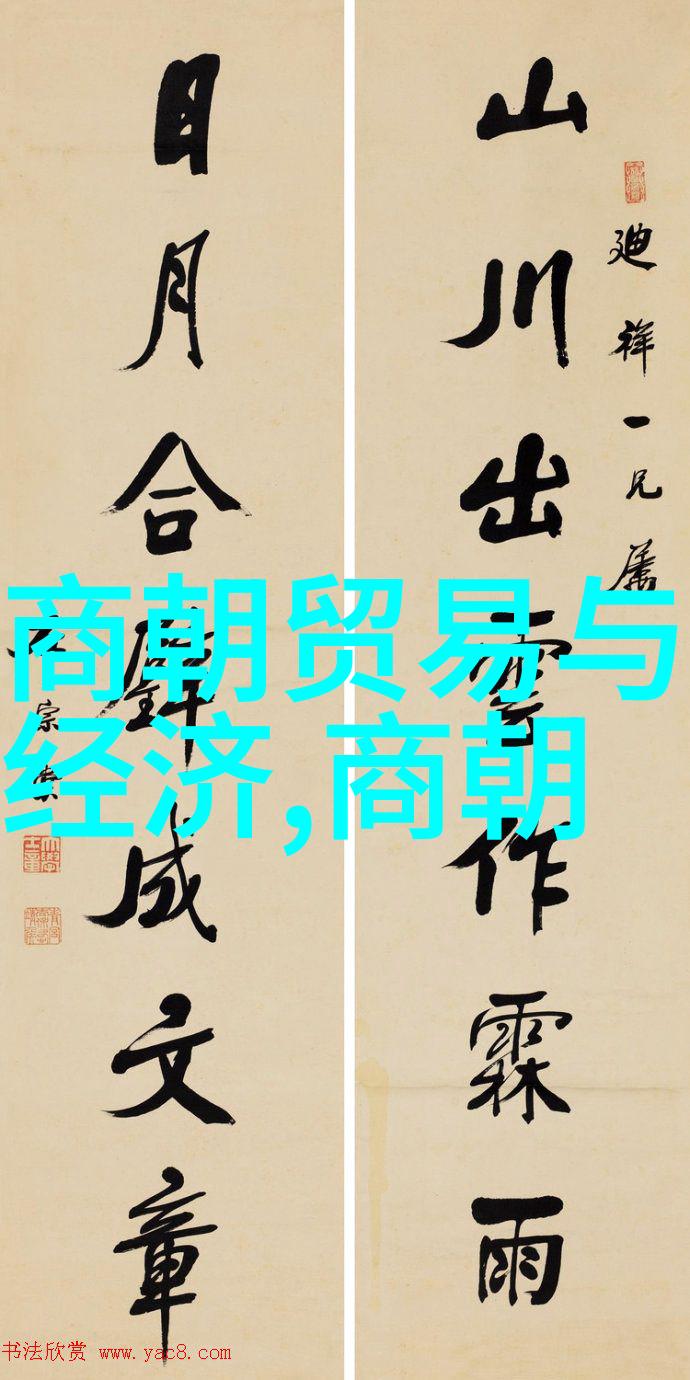 山川出雲作霖雨
廸祥一兄屬
日月合璧成文章
左宗棠
商朝贸易与
经济,商朝
书法欣赏 www.yac8.com